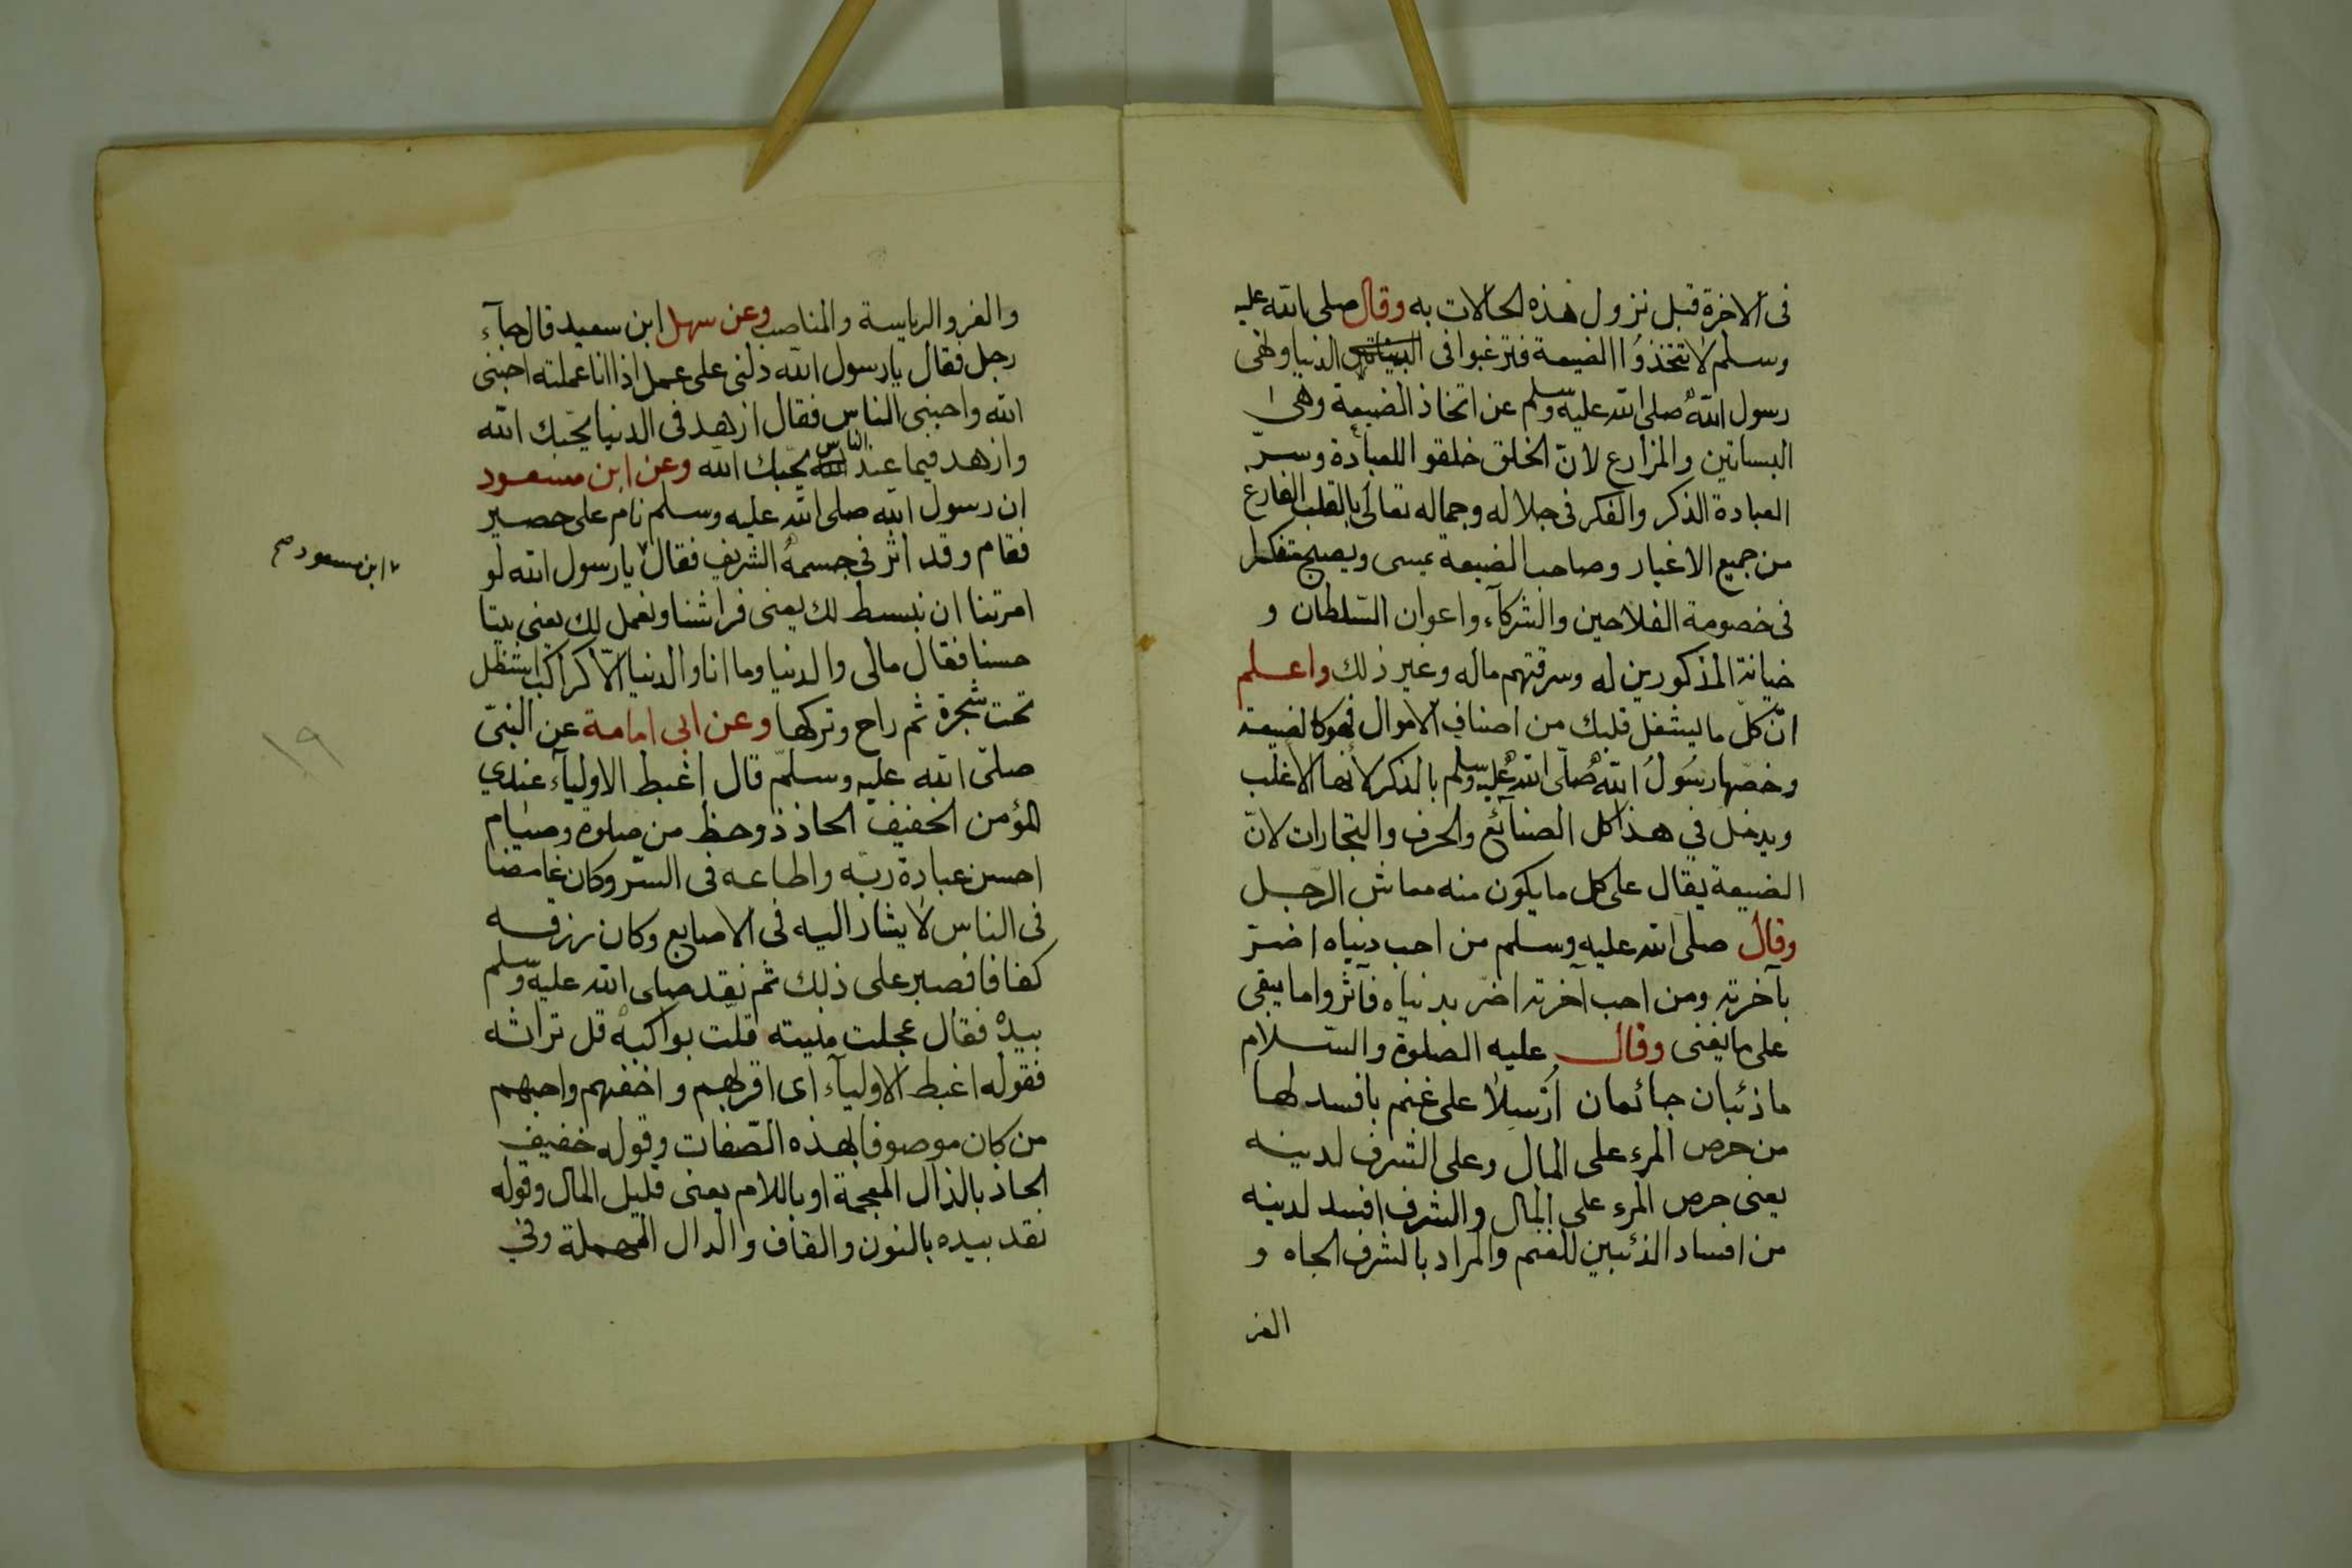 فى الاخرة قبل نزول هذه الحالات به وقال صلى الله عليه
وسلم لا تتخذوا الضيعة فترغبوا فى الدنيا ونهى
رسول الله صلى الله عليه وسلم عن اتخاذ الضيعة وهى
البساتين والمزارع لانّ الخلق خلقوا للعبادة وسرّ
العبادة الذكر والفكر فى جلاله وجماله تعالى بالقلب الفارغ
من جميع الاغيار وصاحب الضيعة يمسى ويصبح متفكرا
فى خصومة الفلاحين والشركآء واعوان السّلطان و
خيانة المذكورين له وسرقتهم ماله وغير ذلك واعلم
انّ كلّ ما يشغل قلبك من اصناف الاموال فهو كالضيعة
وخصّها رسُولُ الله صلّى الله عليه وسلم بالذكر لأنها الاغلب
ويدخل في هذا كل الصنآئع والحرف والتجارات لانّ
الضيعة يقال على كل ما يكون منه معاش الرّجل
وقال صلى الله عليه وسلم من احب دنياه اضرّ
بآخرته ومن احب آخرته اضرّ بدنياه فآثروا ما يبقى
على ما يفنى وقال عليه الصلوة والسّلام
ما ذئبان جائعان اُرْسِلا على غنم بافسد لها
من حرص المرء على المال وعلى الشرف لدينه
يعنى حرص المرء على المال والشرف افسد لدينه
من افساد الذئبين للغنم والمراد بالشرف الجاه و
العز
والعز والرياسة والمناصب وعن سهل ابن سعيد قال جآء
رجل فقال يا رسول الله دلنى على عمل اذا انا عملته احبنى
الله واحبنى الناس فقال ازهد فى الدنيا يحبّك الله
وازهد فيما عند الناس يحبّك الله وعن ابن مسعود
ان رسول الله صلى الله عليه وسلم نام على حصير
فقام وقد اثر فى جسمه الشريف فقال يا رسول الله لو
٧ ابن مسعود صح
امرتنا ان نبسط لك يعنى فراشنا ونعمل لك يعنى بيتا
حسنا فقال مالى والدنيا وما انا والدنيا الّا كراكب استظل
تحت شجرة ثم راح وتركها وعن ابى امامة عن النبىّ
١٩
صلّى الله عليه وسلّم قال اغبط الاوليآء عندي
لمؤمن الخفيف الحاذ ذو حظ من صلوة وصيام
احسن عبادة ربّه واطاعه فى السّر وكان غامضا
فى الناس لا يشار اليه فى الاصابع وكان رزقه
كفافا فصبر على ذلك ثم نقد صلى الله عليه وسلم
بيده فقال عجلت منيته قلّت بواكيه قل تراثه
فقوله اغبط الاوليآء اى اقربهم واخفهم واحبهم
من كان موصوفا بهذه الصّفات وقوله خفيف
الحاذ بالذال المعجمة او باللام يعنى قليل المال وقوله
نقد بيده بالنون والقاف والدال المهملة وفي